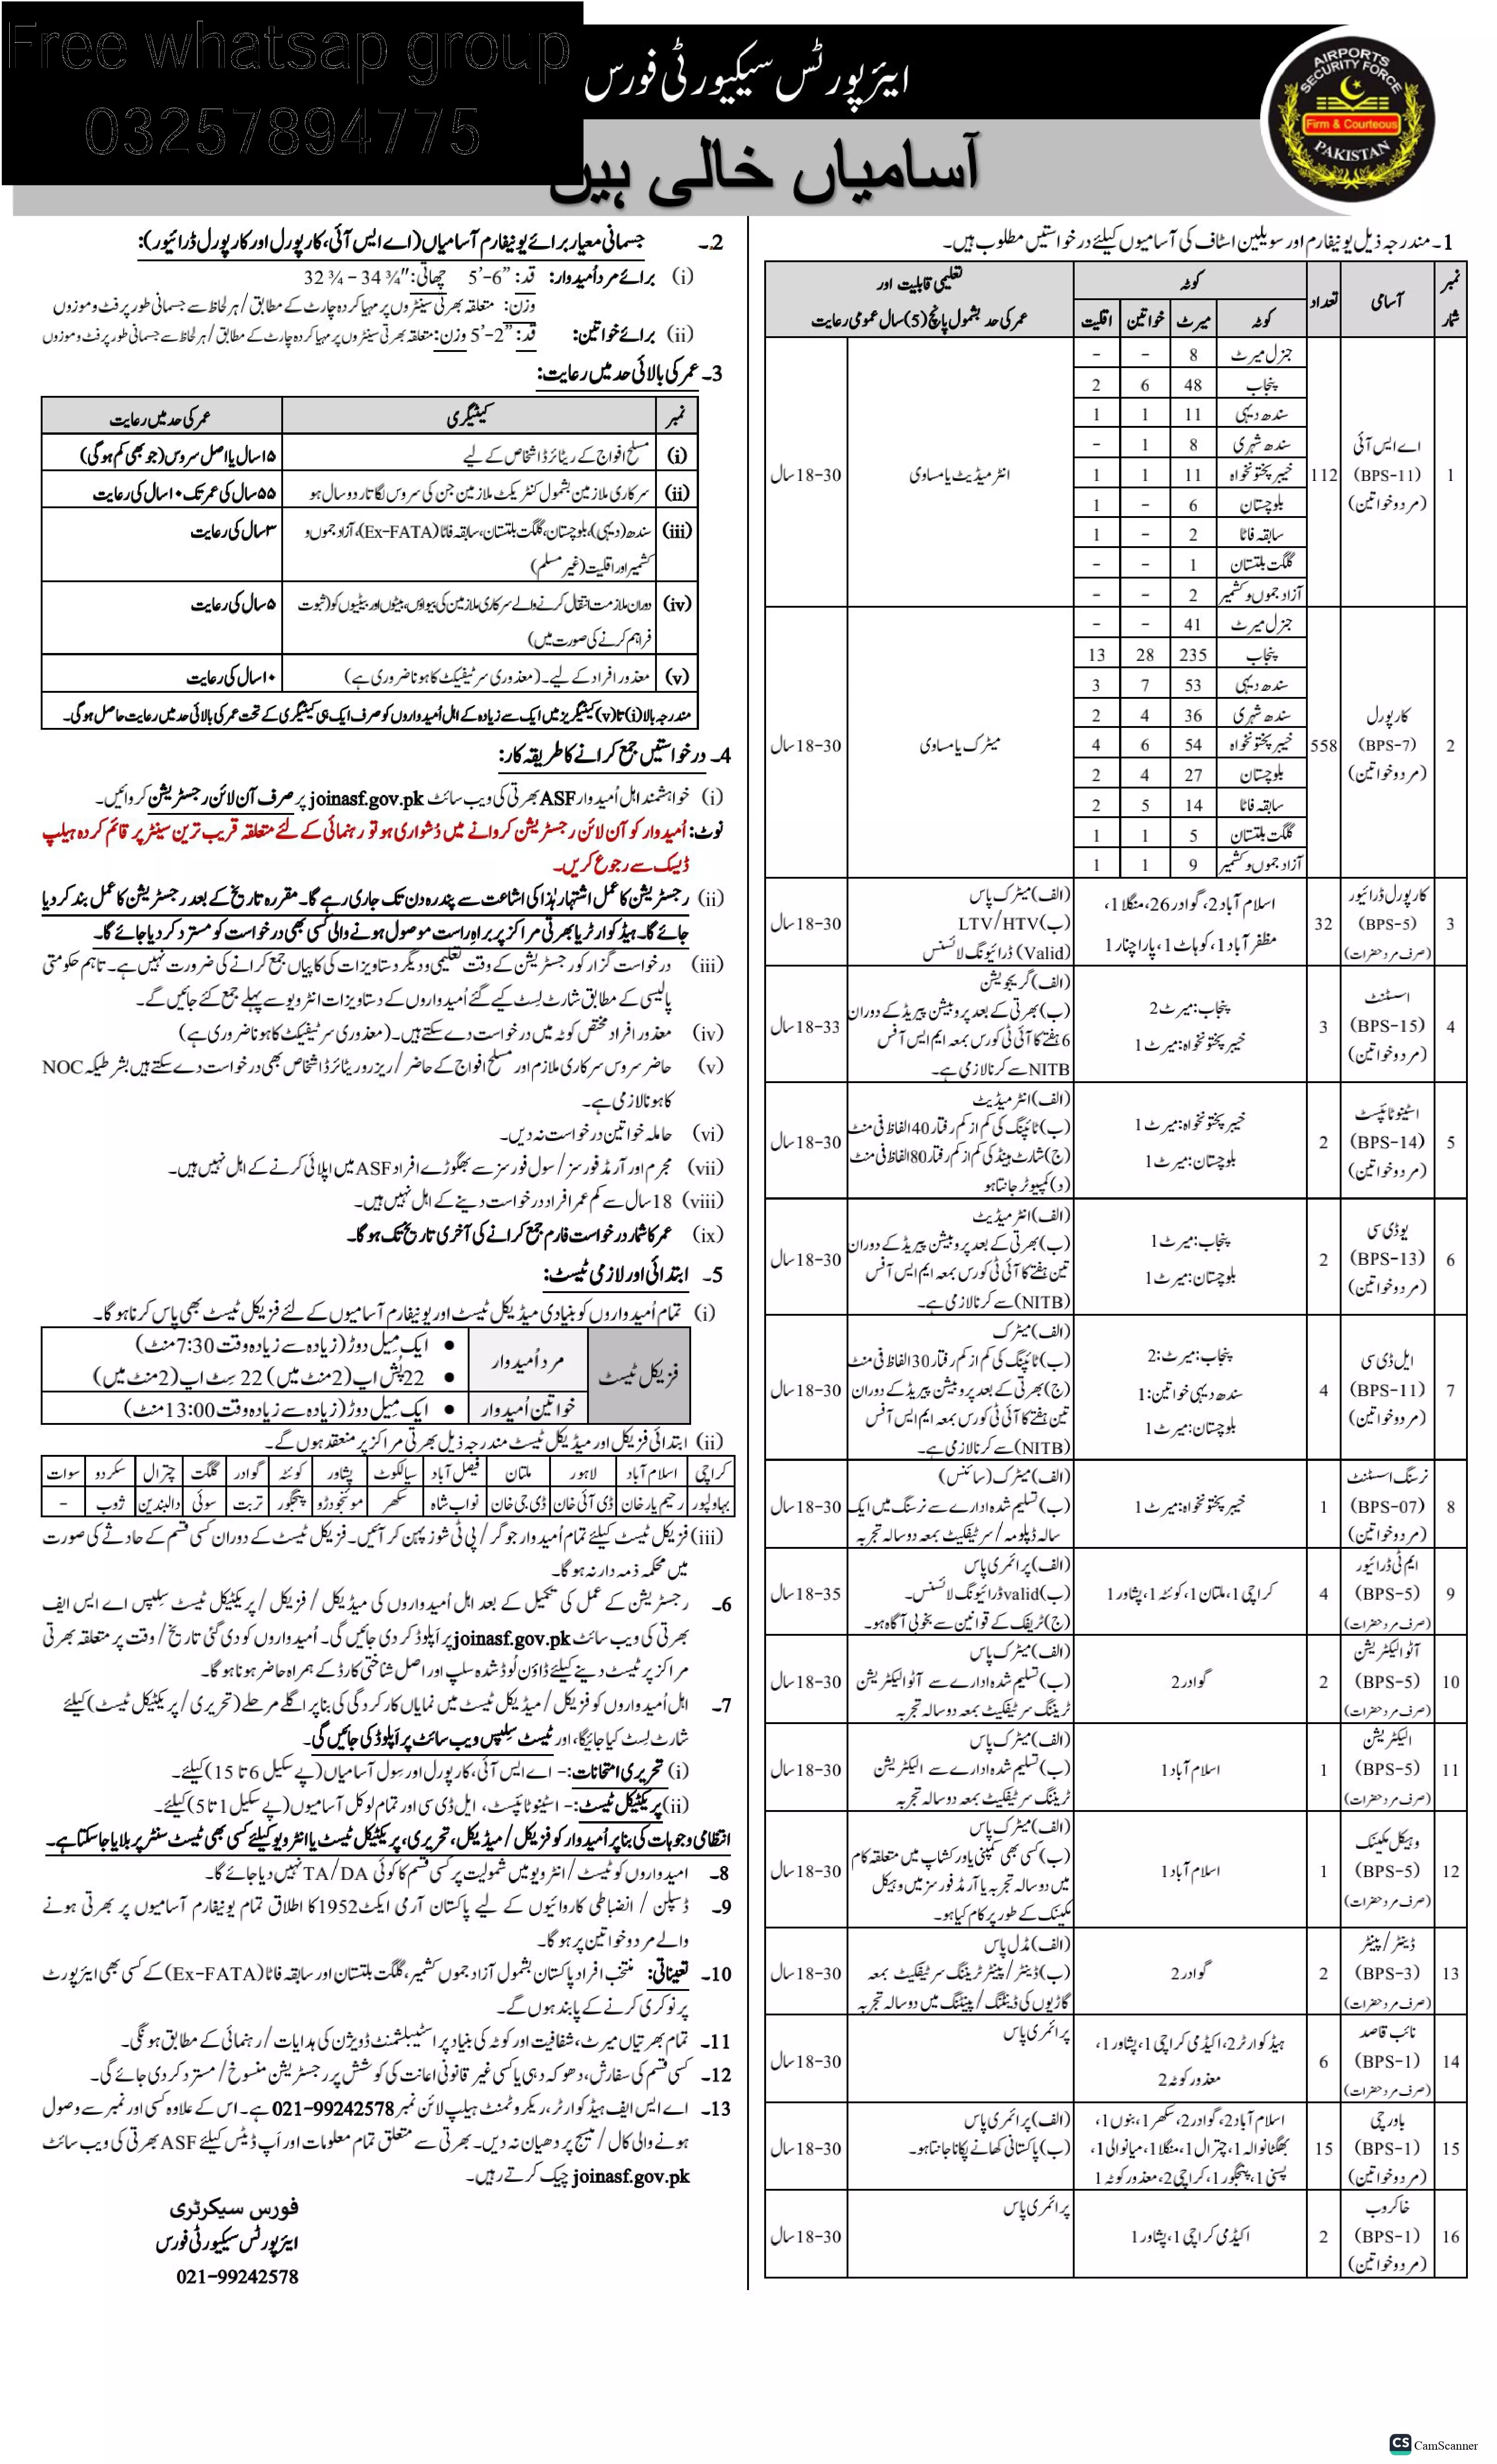 Free whatsap group
03257894775
ایئرپورٹس سیکیورٹی فورس
آسامیاں خالی ہیں
AIRPORTS SECURITY FORCE
Firm & Courteous
PAKISTAN
1۔ مندرجہ ذیل یونیفارم اور سویلین اسٹاف کی آسامیوں کیلئے درخواستیں مطلوب ہیں۔
نمبر شمار | آسامی | تعداد | کوٹہ | تعلیمی قابلیت اور عمر کی حد بشمول پانچ (5) سال عمومی رعایت
کوٹہ | میرٹ | خواتین | اقلیت
1 | اے ایس آئی (BPS-11) (مرد و خواتین) | 112 | انٹرمیڈیٹ یا مساوی | 18-30 سال
جنرل میرٹ | 8 | - | -
پنجاب | 48 | 6 | 2
سندھ دیہی | 11 | 1 | 1
سندھ شہری | 8 | 1 | -
خیبر پختونخواہ | 11 | 1 | 1
بلوچستان | 6 | - | 1
سابقہ فاٹا | 2 | - | 1
گلگت بلتستان | 1 | - | -
آزاد جموں و کشمیر | 2 | - | -
2 | کارپورل (BPS-7) (مرد و خواتین) | 558 | میٹرک یا مساوی | 18-30 سال
جنرل میرٹ | 41 | - | -
پنجاب | 235 | 28 | 13
سندھ دیہی | 53 | 7 | 3
سندھ شہری | 36 | 4 | 2
خیبر پختونخواہ | 54 | 6 | 4
بلوچستان | 27 | 4 | 2
سابقہ فاٹا | 14 | 5 | 2
گلگت بلتستان | 5 | 1 | 1
آزاد جموں و کشمیر | 9 | 1 | 1
3 | کارپورل ڈرائیور (BPS-5) (صرف مرد حضرات) | 32 | اسلام آباد 2، گوادر 26، منگلا 1، مظفر آباد 1، کوہاٹ 1، پاراچنار 1 | (الف) میٹرک پاس (ب) LTV/HTV (Valid) ڈرائیونگ لائسنس | 18-30 سال
4 | اسسٹنٹ (BPS-15) (مرد و خواتین) | 3 | پنجاب: میرٹ 2 خیبر پختونخواہ: میرٹ 1 | (الف) گریجویشن (ب) بھرتی کے بعد پروبیشن پیریڈ کے دوران 6 ہفتے کا آئی ٹی کورس بمعہ ایم ایس آفس NITB سے کرنا لازمی ہے۔ | 18-33 سال
5 | اسٹینو ٹائپسٹ (BPS-14) (مرد و خواتین) | 2 | خیبر پختونخواہ: میرٹ 1 بلوچستان: میرٹ 1 | (الف) انٹرمیڈیٹ (ب) ٹائپنگ کی کم از کم رفتار 40 الفاظ فی منٹ (ج) شارٹ ہینڈ کی کم از کم رفتار 80 الفاظ فی منٹ (د) کمپیوٹر جانتا ہو | 18-30 سال
6 | یو ڈی سی (BPS-13) (مرد و خواتین) | 2 | پنجاب: میرٹ 1 بلوچستان: میرٹ 1 | (الف) انٹرمیڈیٹ (ب) بھرتی کے بعد پروبیشن پیریڈ کے دوران تین ہفتے کا آئی ٹی کورس بمعہ ایم ایس آفس (NITB) سے کرنا لازمی ہے۔ | 18-30 سال
7 | ایل ڈی سی (BPS-11) (مرد و خواتین) | 4 | پنجاب: میرٹ: 2 سندھ دیہی خواتین: 1 بلوچستان: میرٹ 1 | (الف) میٹرک (ب) ٹائپنگ کی کم از کم رفتار 30 الفاظ فی منٹ (ج) بھرتی کے بعد پروبیشن پیریڈ کے دوران تین ہفتے کا آئی ٹی کورس بمعہ ایم ایس آفس (NITB) سے کرنا لازمی ہے۔ | 18-30 سال
8 | نرسنگ اسسٹنٹ (BPS-07) (مرد و خواتین) | 1 | خیبر پختونخواہ: میرٹ 1 | (الف) میٹرک (سائنس) (ب) تسلیم شدہ ادارے سے نرسنگ میں ایک سالہ ڈپلومہ / سرٹیفکیٹ بمعہ دو سالہ تجربہ | 18-30 سال
9 | ایم ٹی ڈرائیور (BPS-5) (صرف مرد حضرات) | 4 | کراچی 1، ملتان 1، کوئٹہ 1، پشاور 1 | (الف) پرائمری پاس (ب) valid ڈرائیونگ لائسنس۔ (ج) ٹریفک کے قوانین سے بخوبی آگاہ ہو۔ | 18-35 سال
10 | آٹو الیکٹریشن (BPS-5) (صرف مرد حضرات) | 2 | گوادر 2 | (الف) میٹرک پاس (ب) تسلیم شدہ ادارے سے آٹو الیکٹریشن ٹریننگ سرٹیفکیٹ بمعہ دو سالہ تجربہ | 18-30 سال
11 | الیکٹریشن (BPS-5) (صرف مرد حضرات) | 1 | اسلام آباد 1 | (الف) میٹرک پاس (ب) تسلیم شدہ ادارے سے الیکٹریشن ٹریننگ سرٹیفکیٹ بمعہ دو سالہ تجربہ | 18-30 سال
12 | وہیکل مکینک (BPS-5) (صرف مرد حضرات) | 1 | اسلام آباد 1 | (الف) میٹرک پاس (ب) کسی بھی کمپنی یا ورکشاپ میں متعلقہ کام میں دو سالہ تجربہ یا آرمڈ فورسز میں وہیکل مکینک کے طور پر کام کیا ہو۔ | 18-30 سال
13 | ڈینٹر / پینٹر (BPS-3) (صرف مرد حضرات) | 2 | گوادر 2 | (الف) مڈل پاس (ب) ڈینٹر / پینٹر ٹریننگ سرٹیفکیٹ بمعہ گاڑیوں کی ڈینٹنگ / پینٹنگ میں دو سالہ تجربہ | 18-30 سال
14 | نائب قاصد (BPS-1) (صرف مرد حضرات) | 6 | ہیڈ کوارٹر 2، اکیڈمی کراچی 1، پشاور 1، معذور کوٹہ 2 | پرائمری پاس | 18-30 سال
15 | باورچی (BPS-1) (مرد و خواتین) | 15 | اسلام آباد 2، گوادر 2، سکھر 1، بنوں 1، بھگٹانوالہ 1، چترال 1، منگلا 1، میانوالی 1، پسنی 1، پنجگور 1، کراچی 2، معذور کوٹہ 1 | (الف) پرائمری پاس (ب) پاکستانی کھانے پکانا جانتا ہو۔ | 18-30 سال
16 | خاکروب (BPS-1) (مرد و خواتین) | 2 | اکیڈمی کراچی 1، پشاور 1 | پرائمری پاس | 18-30 سال
2۔ جسمانی معیار برائے یونیفارم آسامیاں (اے ایس آئی، کارپورل اور کارپورل ڈرائیور):
(i) برائے مرد اُمیدوار: قد: 5’-6” چھاتی: 32 ¾ - 34 ¾”
وزن: متعلقہ بھرتی سینٹروں پر مہیا کردہ چارٹ کے مطابق / ہر لحاظ سے جسمانی طور پر فٹ و موزوں
(ii) برائے خواتین: قد: 5’-2” وزن: متعلقہ بھرتی سینٹروں پر مہیا کردہ چارٹ کے مطابق / ہر لحاظ سے جسمانی طور پر فٹ و موزوں
3۔ عمر کی بالائی حد میں رعایت:
نمبر | کیٹیگری | عمر کی حد میں رعایت
(i) | مسلح افواج کے ریٹائرڈ اشخاص کے لیے | ۱۵ سال یا اصل سروس (جو بھی کم ہوگی)
(ii) | سرکاری ملازمین بشمول کنٹریکٹ ملازمین جن کی سروس لگاتار دو سال ہو | ۵۵ سال کی عمر تک ۱۰ سال کی رعایت
(iii) | سندھ (دیہی)، بلوچستان، گلگت بلتستان، سابقہ فاٹا (Ex-FATA)، آزاد جموں و کشمیر اور اقلیت (غیر مسلم) | ۳ سال کی رعایت
(iv) | دوران ملازمت انتقال کرنے والے سرکاری ملازمین کی بیواؤں، بیٹوں اور بیٹیوں کو (ثبوت فراہم کرنے کی صورت میں) | ۵ سال کی رعایت
(v) | معذور افراد کے لیے۔ (معذوری سرٹیفیکٹ کا ہونا ضروری ہے) | ۱۰ سال کی رعایت
مندرجہ بالا (i) تا (v) کیٹیگریز میں ایک سے زیادہ کے اہل اُمیدواروں کو صرف ایک ہی کیٹیگری کے تحت عمر کی بالائی حد میں رعایت حاصل ہوگی۔
4۔ درخواستیں جمع کرانے کا طریقہ کار:
(i) خواہشمند اہل اُمیدوار ASF بھرتی کی ویب سائٹ joinasf.gov.pk پر صرف آن لائن رجسٹریشن کروائیں۔
نوٹ: اُمیدوار کو آن لائن رجسٹریشن کروانے میں دُشواری ہو تو رہنمائی کے لئے متعلقہ قریب ترین سینٹر پر قائم کردہ ہیلپ
ڈیسک سے رجوع کریں۔
(ii) رجسٹریشن کا عمل اشتہار ہٰذا کی اشاعت سے پندرہ دن تک جاری رہے گا۔ مقررہ تاریخ کے بعد رجسٹریشن کا عمل بند کر دیا
جائے گا۔ ہیڈ کوارٹر یا بھرتی مراکز پر براہِ راست موصول ہونے والی کسی بھی درخواست کو مسترد کر دیا جائے گا۔
(iii) درخواست گزار کو رجسٹریشن کے وقت تعلیمی و دیگر دستاویزات کی کاپیاں جمع کرانے کی ضرورت نہیں ہے۔ تاہم حکومتی
پالیسی کے مطابق شارٹ لسٹ کیے گئے اُمیدواروں کے دستاویزات انٹرویو سے پہلے جمع کئے جائیں گے۔
(iv) معذور افراد مختص کوٹہ میں درخواست دے سکتے ہیں۔ (معذوری سرٹیفکیٹ کا ہونا ضروری ہے)
(v) حاضر سروس سرکاری ملازم اور مسلح افواج کے حاضر / ریزرو ریٹائرڈ اشخاص بھی درخواست دے سکتے ہیں بشرطیکہ NOC
کا ہونا لازمی ہے۔
(vi) حاملہ خواتین درخواست نہ دیں۔
(vii) مجرم اور آرمڈ فورسز / سول فورسز سے بھگوڑے افراد ASF میں اپلائی کرنے کے اہل نہیں ہیں۔
(viii) 18 سال سے کم عمر افراد درخواست دینے کے اہل نہیں ہیں۔
(ix) عمر کا شمار درخواست فارم جمع کرانے کی آخری تاریخ تک ہو گا۔
5۔ ابتدائی اور لازمی ٹیسٹ:
(i) تمام اُمیدواروں کو بنیادی میڈیکل ٹیسٹ اور یونیفارم آسامیوں کے لئے فزیکل ٹیسٹ بھی پاس کرنا ہو گا۔
فزیکل ٹیسٹ | مرد اُمیدوار | • ایک میل دوڑ (زیادہ سے زیادہ وقت 7:30 منٹ)
• 22 پُش اپ (2 منٹ میں) 22 سِٹ اپ (2 منٹ میں)
خواتین اُمیدوار | • ایک میل دوڑ (زیادہ سے زیادہ وقت 13:00 منٹ)
(ii) ابتدائی فزیکل اور میڈیکل ٹیسٹ مندرجہ ذیل بھرتی مراکز پر منعقد ہوں گے۔
کراچی | اسلام آباد | لاہور | ملتان | فیصل آباد | سیالکوٹ | پشاور | کوئٹہ | گوادر | گلگت | چترال | سکردو | سوات
بہاولپور | رحیم یار خان | ڈی آئی خان | ڈی جی خان | نواب شاہ | سکھر | موئنجودڑو | پنجگور | تربت | سوئی | دالبندین | ژوب | -
(iii) فزیکل ٹیسٹ کیلئے تمام اُمیدوار جوگر / پی ٹی شوز پہن کر آئیں۔ فزیکل ٹیسٹ کے دوران کسی قسم کے حادثے کی صورت
میں محکمہ ذمہ دار نہ ہو گا۔
6۔ رجسٹریشن کے عمل کی تکمیل کے بعد اہل اُمیدواروں کی میڈیکل / فزیکل / پریکٹیکل ٹیسٹ سلپس اے ایس ایف
بھرتی کی ویب سائٹ joinasf.gov.pk پر اَپلوڈ کر دی جائیں گی۔ اُمیدواروں کو دی گئی تاریخ / وقت پر متعلقہ بھرتی
مراکز پر ٹیسٹ دینے کیلئے ڈاؤن لُوڈ شدہ سلپ اور اصل شناختی کارڈ کے ہمراہ حاضر ہونا ہو گا۔
7۔ اہل اُمیدواروں کو فزیکل / میڈیکل ٹیسٹ میں نمایاں کارکردگی کی بنا پر اگلے مرحلے (تحریری / پریکٹیکل ٹیسٹ) کیلئے
شارٹ لسٹ کیا جائیگا، اور ٹیسٹ سلپس ویب سائٹ پر اَپلوڈ کی جائیں گی۔
(i) تحریری امتحانات:- اے ایس آئی، کارپورل اور سِول آسامیاں (پے سکیل 6 تا 15) کیلئے۔
(ii) پریکٹیکل ٹیسٹ:- اسٹینو ٹائپسٹ، ایل ڈی سی اور تمام لوکل آسامیوں (پے سکیل 1 تا 5) کیلئے۔
انتظامی وجوہات کی بنا پر اُمیدوار کو فزیکل / میڈیکل، تحریری، پریکٹیکل ٹیسٹ یا انٹرویو کیلئے کسی بھی ٹیسٹ سنٹر پر بلایا جا سکتا ہے۔
8۔ امیدواروں کو ٹیسٹ / انٹرویو میں شمولیت پر کسی قسم کا کوئی TA/DA نہیں دیا جائے گا۔
9۔ ڈسپلن / انضباطی کاروائیوں کے لیے پاکستان آرمی ایکٹ 1952 کا اطلاق تمام یونیفارم آسامیوں پر بھرتی ہونے
والے مرد و خواتین پر ہو گا۔
10۔ تعیناتی: منتخب افراد پاکستان بشمول آزاد جموں کشمیر، گلگت بلتستان اور سابقہ فاٹا (Ex-FATA) کے کسی بھی ایئرپورٹ
پر نوکری کرنے کے پابند ہوں گے۔
11۔ تمام بھرتیاں میرٹ، شفافیت اور کوٹہ کی بنیاد پر اسٹیبلشمنٹ ڈویژن کی ہدایات / رہنمائی کے مطابق ہونگی۔
12۔ کسی قسم کی سفارش، دھوکہ دہی یا کسی غیر قانونی اعانت کی کوشش پر رجسٹریشن منسوخ / مسترد کر دی جائے گی۔
13۔ اے ایس ایف ہیڈ کوارٹر، ریکروٹمنٹ ہیلپ لائن نمبر 021-99242578 ہے۔ اس کے علاوہ کسی اور نمبر سے وصول
ہونے والی کال / میسج پر دھیان نہ دیں۔ بھرتی سے متعلق تمام معلومات اور اَپ ڈیٹس کیلئے ASF بھرتی کی ویب سائٹ
joinasf.gov.pk چیک کرتے رہیں۔
فورس سیکرٹری
ایئرپورٹس سیکیورٹی فورس
021-99242578
CS CamScanner